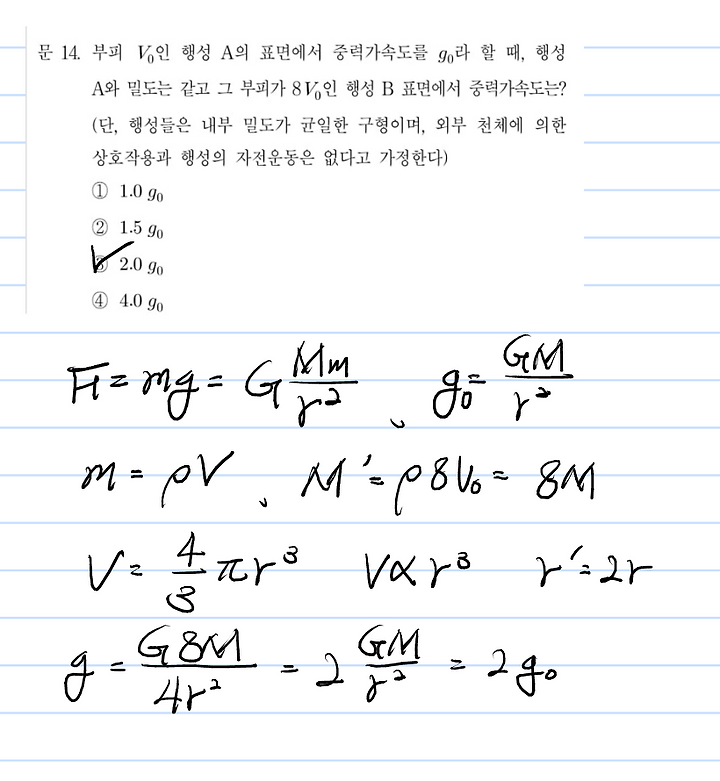 문 14. 부피 V₀인 행성 A의 표면에서 중력가속도를 g₀라 할 때, 행성
A와 밀도는 같고 그 부피가 8V₀인 행성 B 표면에서 중력가속도는?
(단, 행성들은 내부 밀도가 균일한 구형이며, 외부 천체에 의한
상호작용과 행성의 자전운동은 없다고 가정한다)
① 1.0 g₀
② 1.5 g₀
③ 2.0 g₀
④ 4.0 g₀
F = mg = G Mm/r² , g₀ = GM/r²
m = ρV , M' = ρ8V₀ = 8M
V = 4/3 πr³ V ∝ r³ r' = 2r
g = G8M/4r² = 2 GM/r² = 2g₀